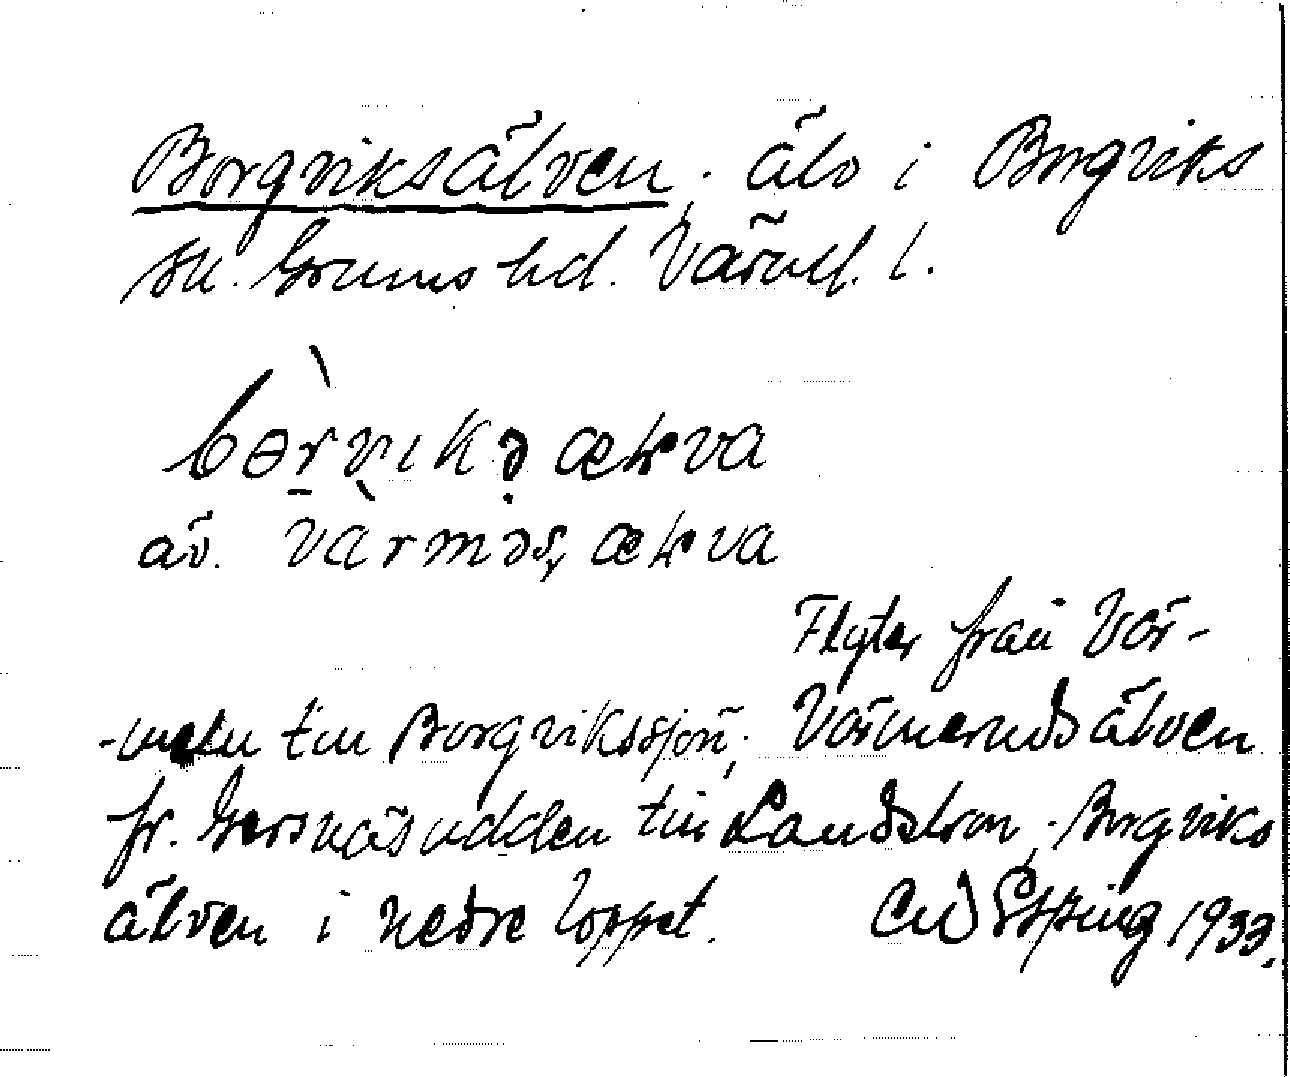 Borgviksälven, älv i Borgviks
sn. Grums hd. Värml. l.
bərviks ækva
äv. värməs, ækva
Flyter från Vär-
-meln till Borgvikssjön; Värmerudsälven
fr. Gersnäsudden till Landsbron, Borgviks
älven i nedre loppet. 1933.